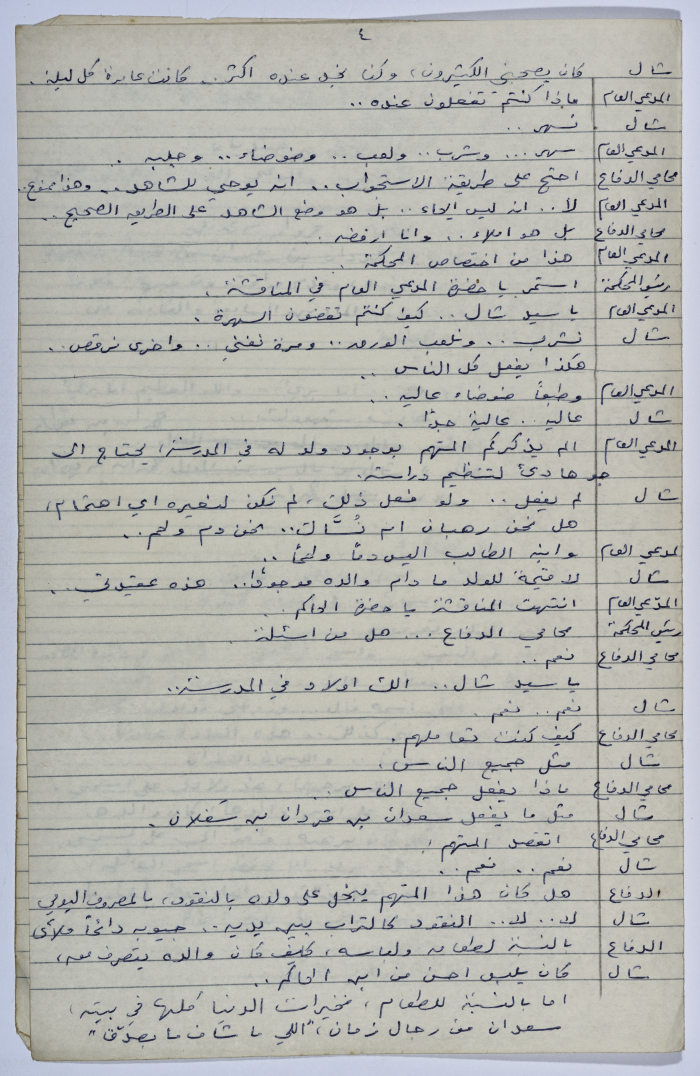 ٤
شال كان يصحبني الكثيرون، وكنا نجد عنده اكثر.. كانت عامرة كل ليلة.
المدعي العام ماذا كنتم تفعلون عنده..
شال نسهر..
المدعي العام سهر... وشرب.. ولعب.. وضوضاء.. وجلبه..
محامي الدفاع احتج على طريقة الاستجواب.. انه يوحي للشاهد.. وهذا ممنوع..
المدعي العام لأ.. انه ليس ايحاء.. بل هو وضع الشاهد على الطريق الصحيح..
محامي الدفاع بل هو املاء.. وانا ارفضه.
المدعي العام هذا من اختصاص المحكمة.
رئيس المحكمة استمر يا حضرة المدعي العام في المناقشة.
المدعي العام يا سيد شال.. كيف كنتم تقضون السهرة.
شال نشرب.. ونلعب الورق.. ومرة نغني.. واخرى نرقص..
هكذا يفعل كل الناس..
المدعي العام وطبعاً ضوضاء عاليه..
شال عاليه.. عالية جدًا.
المدعي العام الم يذكركم المتهم بوجود ولد له في المدرسة، يحتاج الى
جو هادئ لتنظيم دراسته.
شال لم يفعل.. ولو فعل ذلك، لم نكن لنعيره اي اهتمام،
هل نحن رهبان ام نُسَّاك.. نحن دم ولحم..
المدعي العام وابنه الطالب اليس دماً ولحماً..
شال لا قيمة للولد ما دام والده موجوداً.. هذه عقيدتي..
المدّعي العام انتهت المناقشة يا حضرة الحاكم.
رئيس المحكمة محامي الدفاع... هل من اسئلة.
محامي الدفاع نعم..
يا سيد شال.. الك اولاد في المدرسة..
شال نعم.. نعم.
محامي الدفاع كيف كنت تعاملهم.
شال مثل جميع الناس.
محامي الدفاع ماذا يفعل جميع الناس..
شال مثل ما يفعل سعدان بن قردان بن سَعْلان.
محامي الدفاع اتقصد المتهم.
شال نعم.. نعم..
الدفاع هل كان هذا المتهم يبخل على ولده بالنقود، بالمصروف اليومي
شال لا.. لا.. النقود كالتراب بين يديه.. جيوبه دائماً ملأى
الدفاع بالنسبة لطعامه ولباسه، كيف كان والده يتصرف معه،
شال كان يلبس احسن من ابن الحاكم..
اما بالنسبة للطعام، فخيرات الدنيا كلها في بيته،
سعدان من رجال زمان، "اللي ما شاف ما بصدّق"